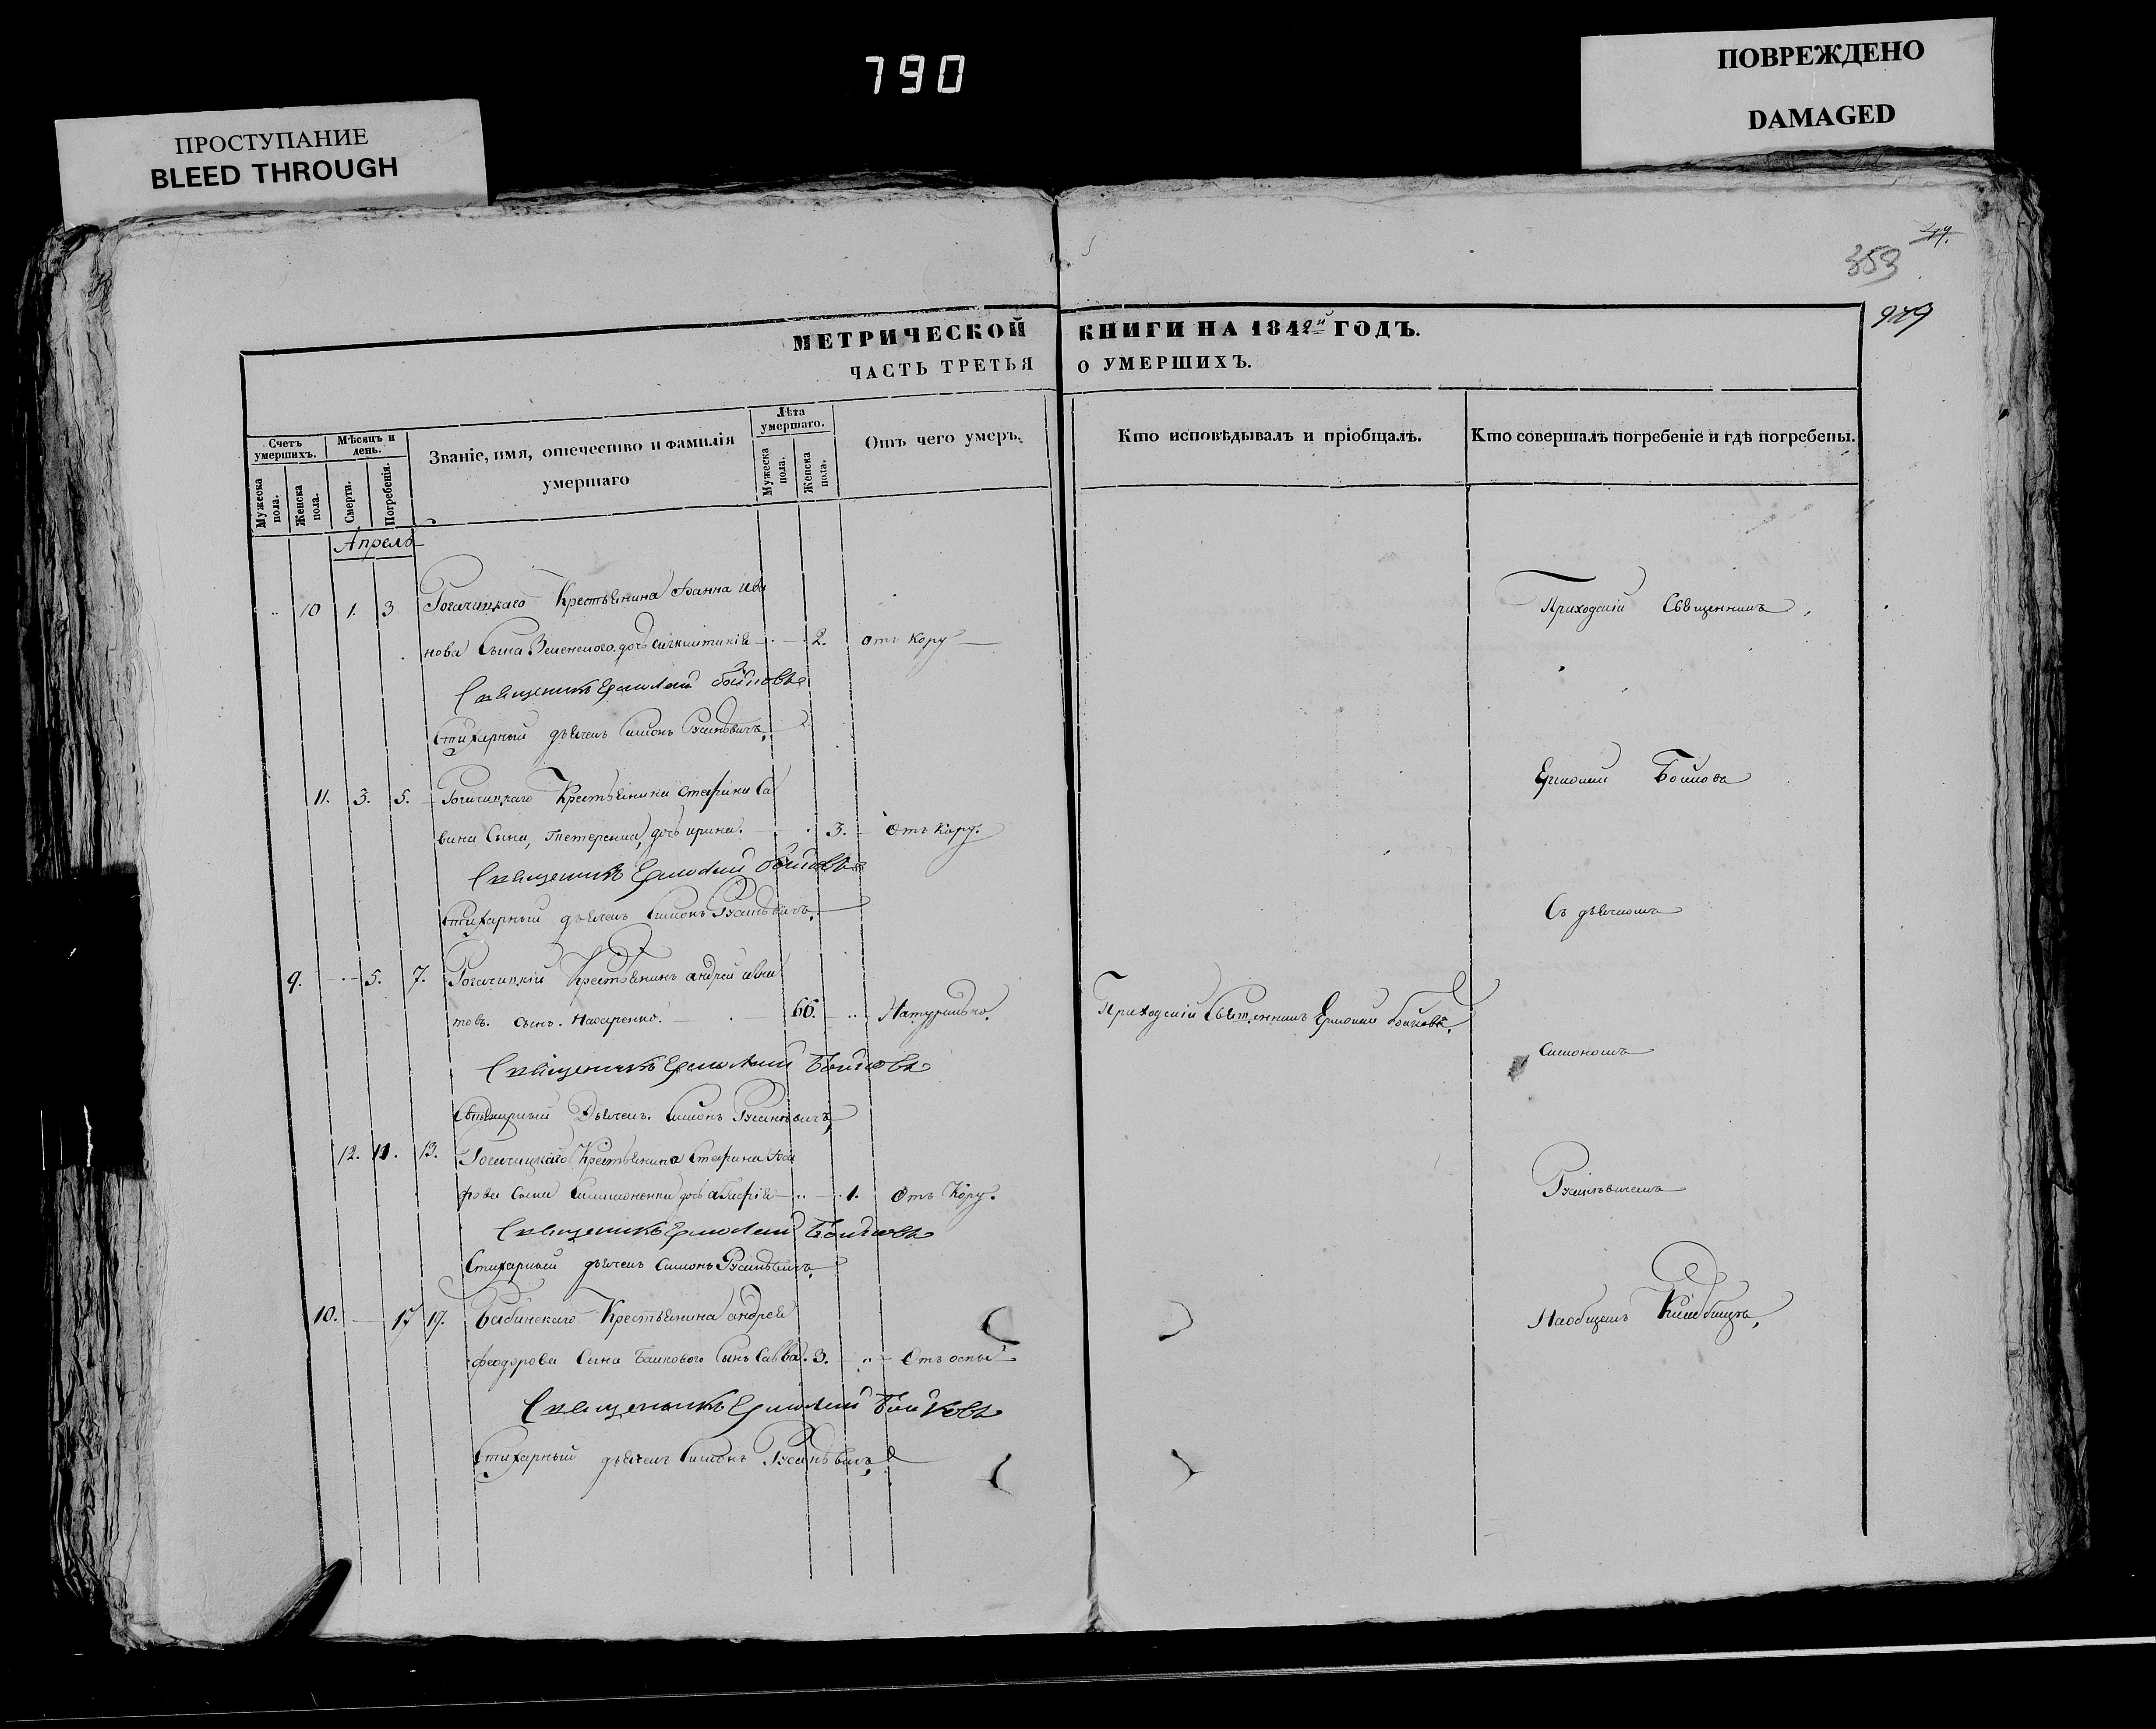 790
ПРОСТУПАНИЕ
BLEED THROUGH
ПОВРЕЖДЕНО
DAMAGED
353
МЕТРИЧЕСКОЙ КНИГИ НА 1842й ГОДЪ.
ЧАСТЬ ТРЕТЬЯ О УМЕРШИХЪ.
Счетъ умершихъ.
Мужеска пола.
Женска пола.
Мѣсяцъ и день.
Смерти.
Погребенія.
Званіе, имя, отечество и фамилія умершаго
Лѣта умершаго.
Мужеска пола.
Женска пола.
Отъ чего умеръ.
Кто исповѣдывалъ и пріобщалъ.
Кто совершалъ погребеніе и гдѣ погребены.
Апрель
10 1. 3 Рогачицкаго Крестьянина Иоанна ива
нова Сына дочь 2. отъ Кору
Священникъ Ермолай Бойковъ
Стихарный дьячекъ Симонъ
11. 3. 5. Рогачицкаго Крестьянина Стефана Са
вина Сына, дочь ирина. 3. Отъ Кору.
Священникъ Ермолай Бойковъ
Стихарный дьячекъ Симонъ
9. 5. 7. Рогачицкій Крестьянинъ андрей
сынъ. Назаренко. 66. Натурально.
Приходскій Священникъ Ермолай Бойковъ.
Священникъ Ермолай Бойковъ
Стихарный Дьячекъ. Симонъ
12. 11. 13. Рогачицкаго Крестьянина Стефана
Сына дочь 1. Отъ Кору.
Священникъ Ермолай Бойковъ
Стихарный дьячекъ Симонъ
10. 17 19. Бабинскаго Крестьянина андрея
феодорова Сына Сынъ Савва. 3. Отъ оспы
Священникъ Ермолай Бойковъ
Стихарный дьячекъ Симонъ
Приходскій Священникъ
Ермолай Бойковъ
Съ дьячкомъ
Симономъ
На общемъ Кладбищѣ,